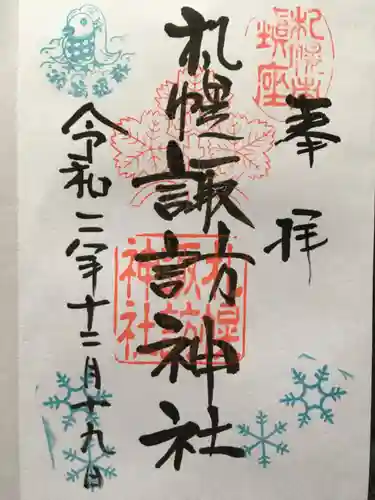 奉拝
札幌鎮座
札幌諏訪神社
札幌
諏訪
神社
令和二年十二月十九日